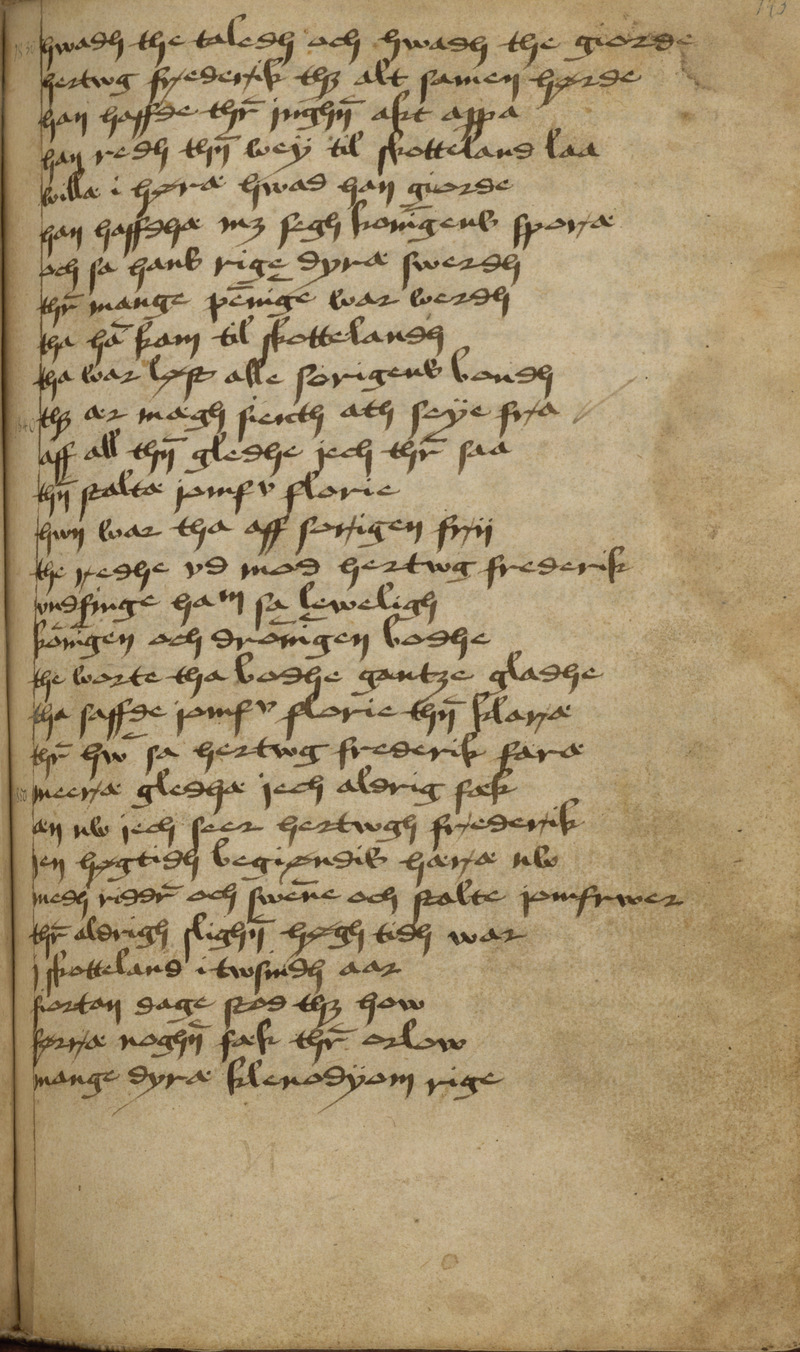 hwadh the taledh och hwadh the giorde
hertwg frederik thꝫ alt samen hørde
han haffde thr̄ inghn̄ akt appa
han redh thn̄ wey til skotteland laa
willæ i høræ hwad han giorde
han haffdhæ mꝫ segh konīgens sporæ
och sa hans rige dyræ swerdh
thr̄ mange pēnīge war werdh
tha hā kam til skottelandh
tha war løst alle sorigens bondh
thꝫ ær mægh sienth ath seye fra
aff all thn̄ gledhe iech thr̄ saa
thn̄ stalta iomfv florie
hwn war tha aff sorrigen frii
the redhe vd mod hertwg frederik
vndfinge ham sa leweligh
konīgen och dronīgen bodhe
the worte tha bodhe gantze gladhe
tha saffde iomfv florie thn̄ klaræ
thr̄ hw̄ sa hertwg frederik faræ
meeræ gledhæ iech aldrig fæk
æn nw iech seer hertwgh frederik
ien høgtidh begiøndis hæræ nw
medh riddr̄ och swēne och stalte iomfrwer
thr̄ aldrigh slighn̄ høgh tidh war
i skotteland i twsindh aar
fiortan dage stod thꝫ how
førræ noghn̄ fæk thr̄ orlow
mange dyræ klenodyom rige